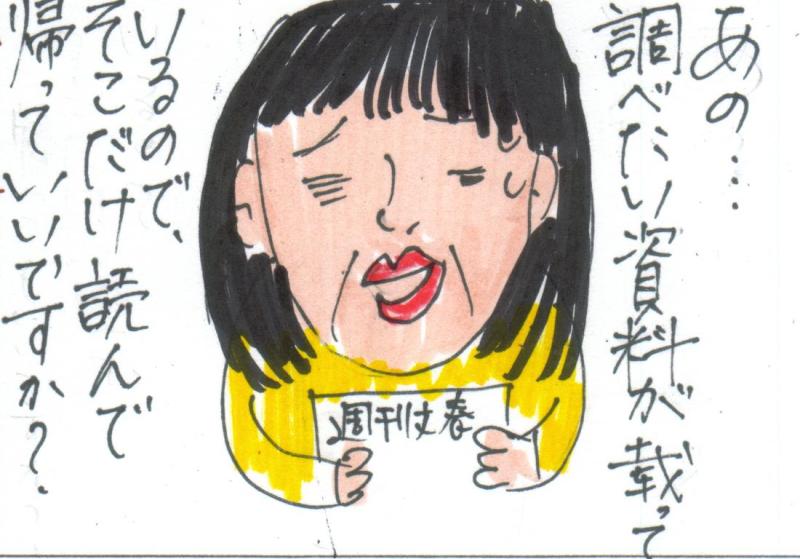 あの…
調べたい資料が載って
いるので、
そこだけ読んで
帰っていいですか?
週刊文春